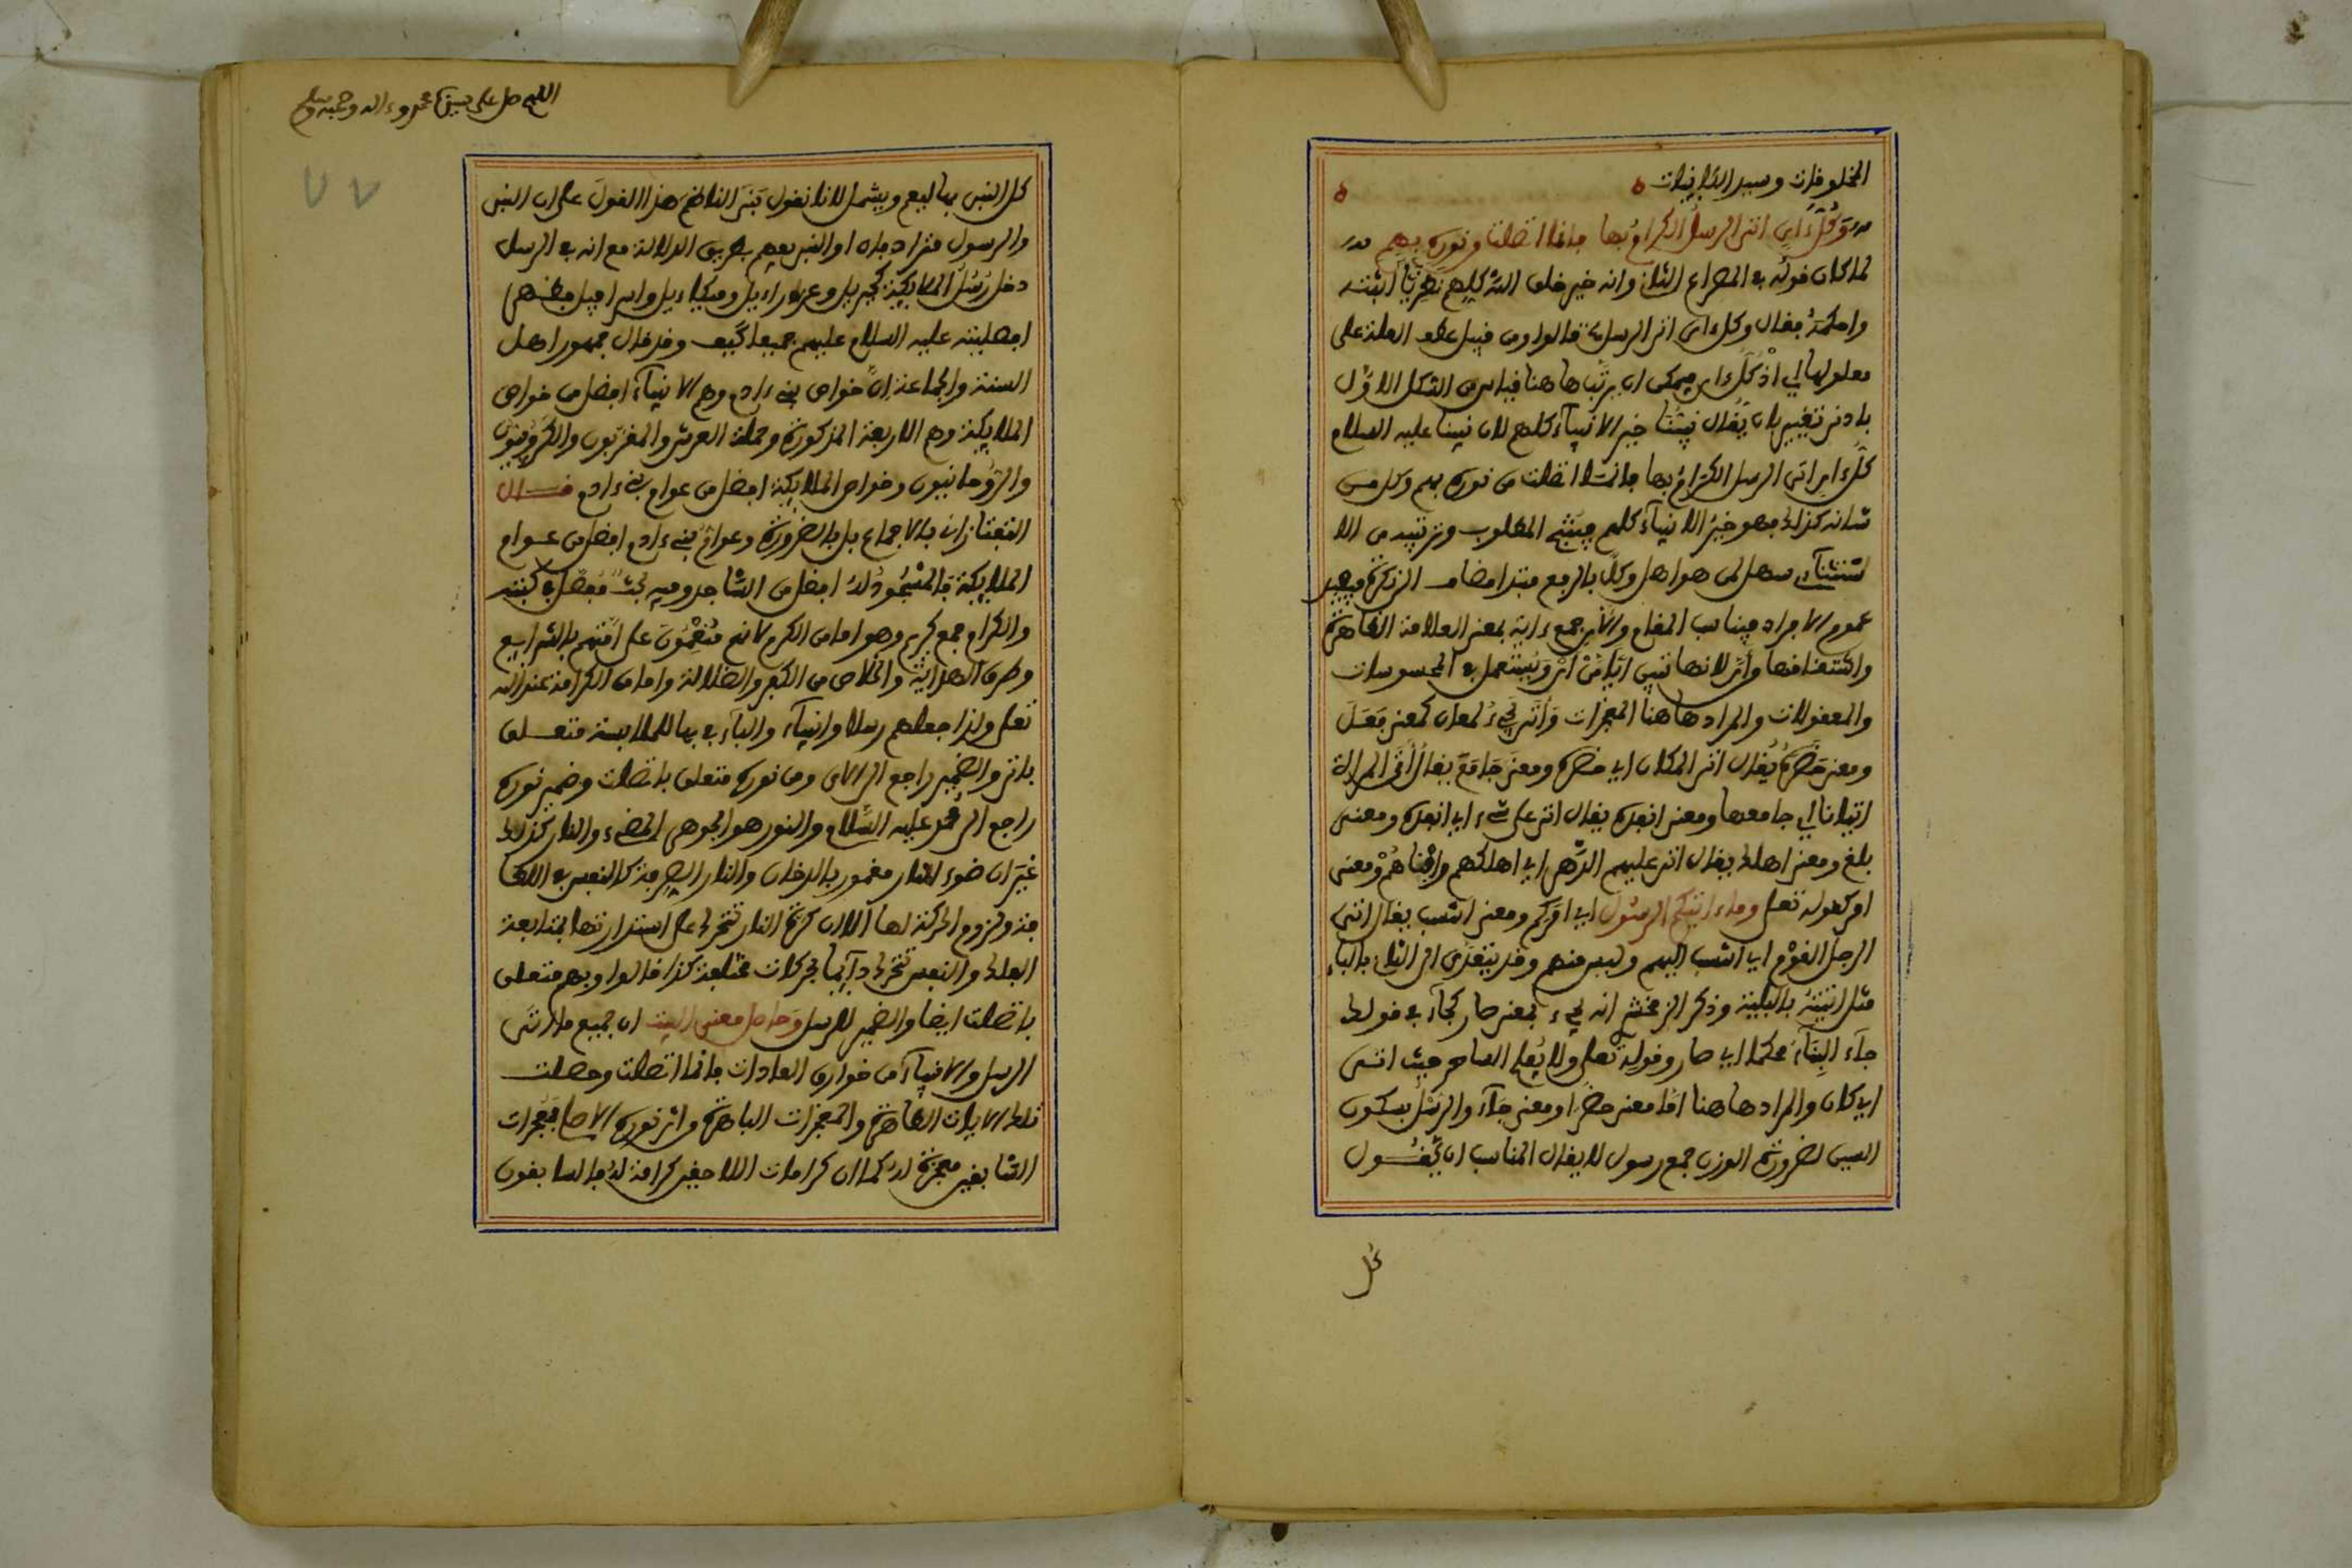 المخلوقات وسيد الكاينات ه ه
وَكُلُّ ءَايٍ اتى الرسلُ الكرامُ بها فإنما اتصلت من نوره بِهِم
لما كان قوله في المصراع الثاني وانه خير خلق الله كلهم نظريا اثبته
واحكمه فقال وكل ءاى اتى الرسل قالوا ومن قبيل عطف العلة على
معلولها اي اذ كل ءاى فيمكن ان يرتب هاهنا قياس من الشكل الاول
بادنى تغيير بان يقال نبينا خير الانبيآء كلهم لان نبينا عليه السلام
كل ءاي اتى الرسل الكرام بها فانما اتصلت من نوره بهم وكل من
شانه كذلك فهو خير الانبيآء كلهم فينتج المطلوب وترتيبه من الا
ستثناءي سهل لمن هو اهل وكل بالرفع مبتدا مضاف الى نكرة فيفيد
عموم الافراد فيناسب المقام والآي جمع ءاية بمعنى العلامة الظاهرة
واشتقاقها من أيّ لانها تبين ايًّا من ايّ ويستعمل في المحسوسات
والمعقولات والمراد هاهنا المعجزات وأتى يجيء لمعان كمعنى فعل
ومعنى حضر يُقال اتى المكان اي حضره ومعنى جامع يقال أتى المراة
اتيانا اي جامعها ومعنى انفذه يقال اتى على شيء اي انفذه ومعنى
بلغ ومعنى اهلك يقال اتى عليهم الدهر اي اهلكهم وافناهم ومعنى
امر كقوله تعلى وما ءاتيكم الرسول اي امركم ومعنى انتسب يقال اتى
الرجل القوم اي انتسب اليهم وليس منهم وقد يتعدى الى الثاني بالبآء
مثل اتيته بالبلية وذكر الزمخشري انه يجيء بمعنى صار كجآء في قولك
جآء البنآء محكما اي صار وقوله تعلى ولا يُفلح الساحر حيث اتى
اي كان والمراد هاهنا اما معنى حضر او معنى جآء والرسْل بسكون
السين لضرورة الوزن جمع رسول لا يقال المناسب ان يقول
كل
اللهم صل على سيدنا محمد وءاله وصحبه وسلم
٧٧
كل النبي بها ليعم ويشمل لانا نقول بنى الناظم هذا القول على ان النبي
والرسول مترادفان او النبي يفهم بطريق الدلالة مع انه في الرسل
دخل رسل الملايكة كجبريل وعزراءيل وميكاءيل واسرافيل فظهر
افضليته عليه السلام عليهم جميعا كيف وقد قال جمهور اهل
السنة والجماعة ان خواص بني ءادم وهم الانبيآء افضل من خواص
الملايكة وهم الاربعة المذكورة وحملة العرش والمقربون والكروبيون
والروحانيون وخواص الملايكة افضل من عوام بني ءادم قال
التفتازاني بالاجماع بل بالضرورة وعوام بني ءادم افضل من عوام
الملايكة فالمسجود له افضل من الساجد وفيه بحث مفصل في كتبه
والكرام جمع كريم وهو اما من الكرم لانهم منعمون على امتهم بالشرايع
وطرق الهداية والخلاص من الكفر والضلالة واما من الكرامة عند الله
تعلى ولذا جعلهم رسلا وانبيآء والبآء في بها للملابسة متعلق
باتى والضمير راجع الى الاى ومن نوره متعلق باتصلت وضمير نوره
راجع الى محمد عليه السلام والنور هو الجوهر المضيء والنار كذلك
غير ان ضوء النار مغمور بالدخان والنار الصرفة كالنفس في اللطا
فة ولزوم الحركة لها الا ان كرة النار تتحرك على استدارتها بمتابعة
الفلك والنفس تتحرك دآيما بحركات مختلفة كذا قالوا وبهم متعلق
باتصلت ايضا والضمير للرسل وحاصل معنى البيت ان جميع ما اتى
الرسل والانبيآء من خوارق العادات فانما اتصلت وحصلت
تلك الايات الظاهرة والمعجزات الباهرة من اثر نوره الاصل فمعجزات
السابقين معجزة له كما ان كرامات اللاحقين كرامة له فالسابقون